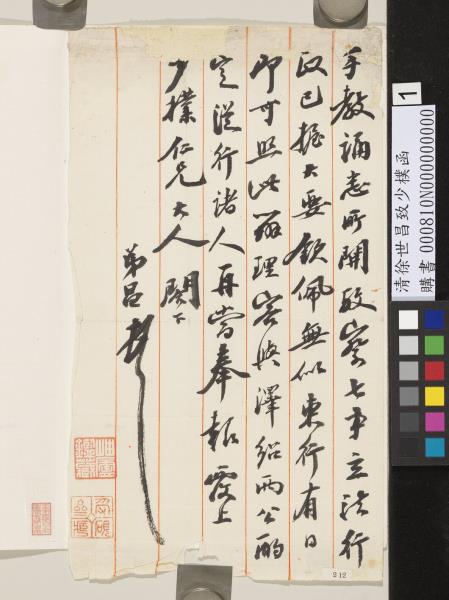 手教誦悉所開致察七事立法行
政已握大要欽佩無似東行有日
即可照此辦理容與澤紹兩公酌
定從行諸人再當奉報覆上
少樸仁兄大人閣下
弟昌頓
清徐世昌致少樸函
購書 000810N000000000
1
212